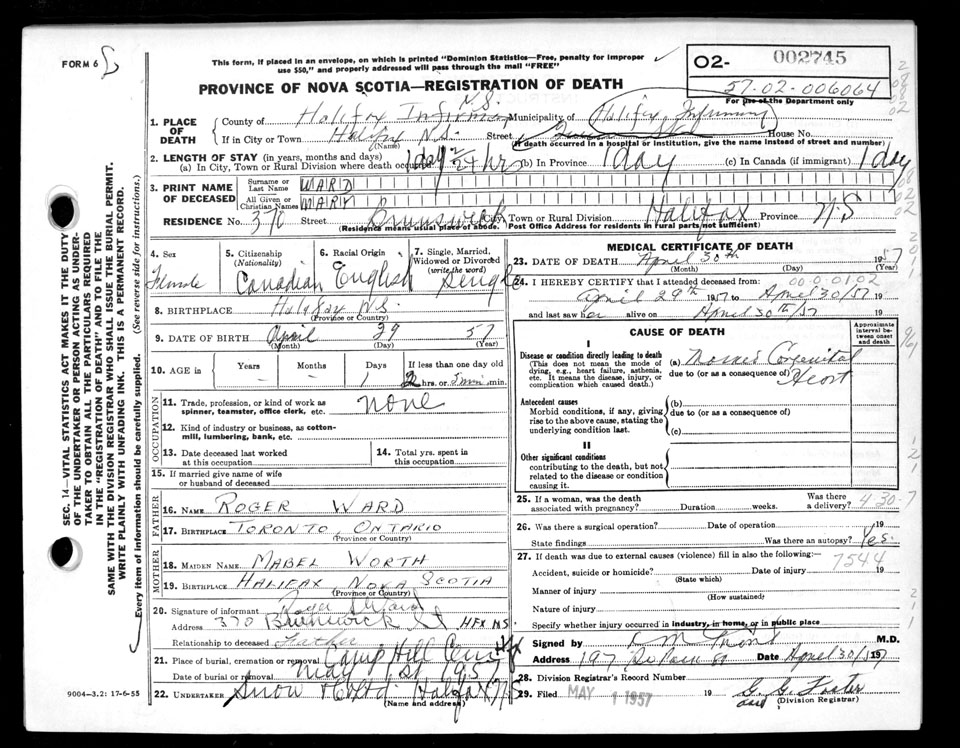 FORM 6
This form, if placed in an envelope, on which is printed "Dominion Statistics—Free, penalty for improper
use $50," and properly addressed will pass through the mail "FREE"
PROVINCE OF NOVA SCOTIA—REGISTRATION OF DEATH
O2- 002745
57-02-006064
For use of the Department only
SEC. 14—VITAL STATISTICS ACT MAKES IT THE DUTY
OF THE UNDERTAKER OR PERSON ACTING AS UNDER-
TAKER TO OBTAIN ALL THE PARTICULARS REQUIRED
IN THE "REGISTRATION OF DEATH" AND TO FILE THE
SAME WITH THE DIVISION REGISTRAR WHO SHALL ISSUE THE BURIAL PERMIT.
WRITE PLAINLY WITH UNFADING INK. THIS IS A PERMANENT RECORD.
Every item of information should be carefully supplied. (See reverse side for instructions.)
1. PLACE OF DEATH
County of Halifax Infirmary N.S. Municipality of Halifax Infirmary
If in City or Town Halifax N.S. Street House No.
(Name) (If death occurred in a hospital or institution, give the name instead of street and number)
2. LENGTH OF STAY (in years, months and days)
(a) In City, Town or Rural Division where death occurred 1 day 2/24 hr (b) In Province 1 day (c) In Canada (if immigrant) 1 day
3. PRINT NAME OF DECEASED
Surname or Last Name WARD
All Given or Christian Names MARY
RESIDENCE No. 370 Street Brunswick City, Town or Rural Division Halifax Province N.S
(Residence means usual place of abode. Post Office Address for residents in rural parts not sufficient)
4. Sex Female
5. Citizenship (Nationality) Canadian
6. Racial Origin English
7. Single, Married, Widowed or Divorced (write the word) Single
8. BIRTHPLACE Halifax N.S.
(Province or Country)
9. DATE OF BIRTH April 29 57
(Month) (Day) (Year)
10. AGE in Years - Months - Days 1 If less than one day old 2 hrs. or 5 min min.
OCCUPATION
11. Trade, profession, or kind of work as spinner, teamster, office clerk, etc. none
12. Kind of industry or business, as cotton-mill, lumbering, bank, etc.
13. Date deceased last worked at this occupation
14. Total yrs. spent in this occupation
15. If married give name of wife or husband of deceased
FATHER
16. NAME ROGER WARD
17. BIRTHPLACE TORONTO, ONTARIO
(Province or Country)
MOTHER
18. MAIDEN NAME MABEL WORTH
19. BIRTHPLACE HALIFAX, NOVA SCOTIA
(Province or Country)
20. Signature of informant Roger Ward
Address 370 Brunswick St HFX N.S.
Relationship to deceased Father
21. Place of burial, cremation or removal Camp Hill Cem Hfx
Date of burial or removal May 1st 1957
22. UNDERTAKER Snow & Co Ltd. Halifax N.S
(Name and address)
9004-3.2: 17-6-55
MEDICAL CERTIFICATE OF DEATH
23. DATE OF DEATH April 30th 1957
(Month) (Day) (Year)
24. I HEREBY CERTIFY that I attended deceased from: 00 0-0102
April 29th 1957 to April 30/57 19
and last saw her alive on April 30th/57 19
CAUSE OF DEATH
Approximate interval between onset and death
I
Disease or condition directly leading to death
(This does not mean the mode of dying, e.g., heart failure, asthenia, etc. It means the disease, injury, or complication which caused death.)
(a) Congenital
due to (or as a consequence of) Heart
Antecedent causes
Morbid conditions, if any, giving rise to the above cause, stating the underlying condition last.
(b)
due to (or as a consequence of)
(c)
II
Other significant conditions
contributing to the death, but not related to the disease or condition causing it.
25. If a woman, was the death associated with pregnancy? Duration weeks. Was there a delivery? 4-30-7
26. Was there a surgical operation? Date of operation 19
State findings Was there an autopsy? Yes.
27. If death was due to external causes (violence) fill in also the following: 7544
Accident, suicide or homicide? Date of injury 19
(State which)
Manner of injury
(How sustained)
Nature of injury
Specify whether injury occurred in industry, in home, or in public place
Signed by M.D.
Address 197 Date April 30/57 19
28. Division Registrar's Record Number
29. Filed MAY 1 1957 19 G. G. Foster
(Division Registrar)